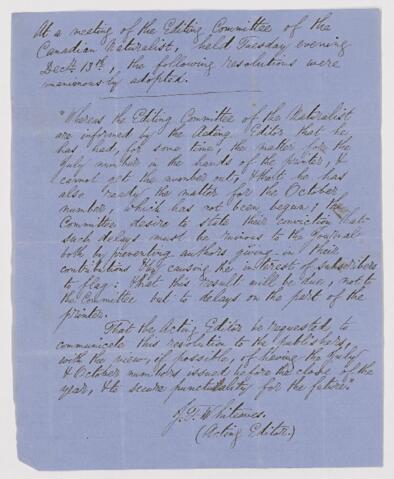 At a meeting of the Editing Committee of the
Canadian Naturalist, held Tuesday evening
Decr. 13th, the following resolutions were
unanimously adopted.
"Whereas the Editing Committee of the Naturalist
are informed by the Acting Editor that he
has had, for some time, the matter for the
July number in the hands of the printer, &
cannot get the number out, & that he has
also ready the matter for the October
number, which has not been begun; the
Committee desire to state their conviction that
such delays must be injurious to the Journal
both by preventing authors giving in their
contributions & by causing the interest of subscribers
to flag: that this result will be due, not to
the Committee but to delays on the part of the
printer.
That the Acting Editor be requested to
communicate this resolution to the publishers,
with the view, if possible, of having the July
& October numbers issued before the close of the
year, & to secure punctuality for the future."
J. F. Whiteaves.
(Acting Editor.)